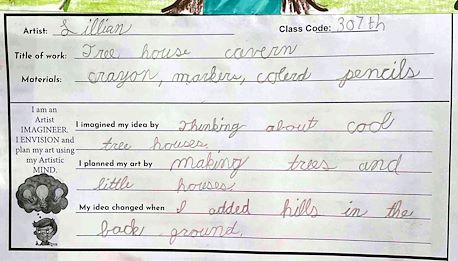 Artist: Lillian Class Code: 307th
Title of work: Tree house cavern
Materials: crayon, markers, colerd pencils
I am an
Artist
IMAGINEER.
I ENVISION and
plan my art using
my Artistic
MIND.
I imagined my idea by Thinking about cool
tree houses.
I planned my art by making trees and
little houses.
My idea changed when I added hills in the
back ground.